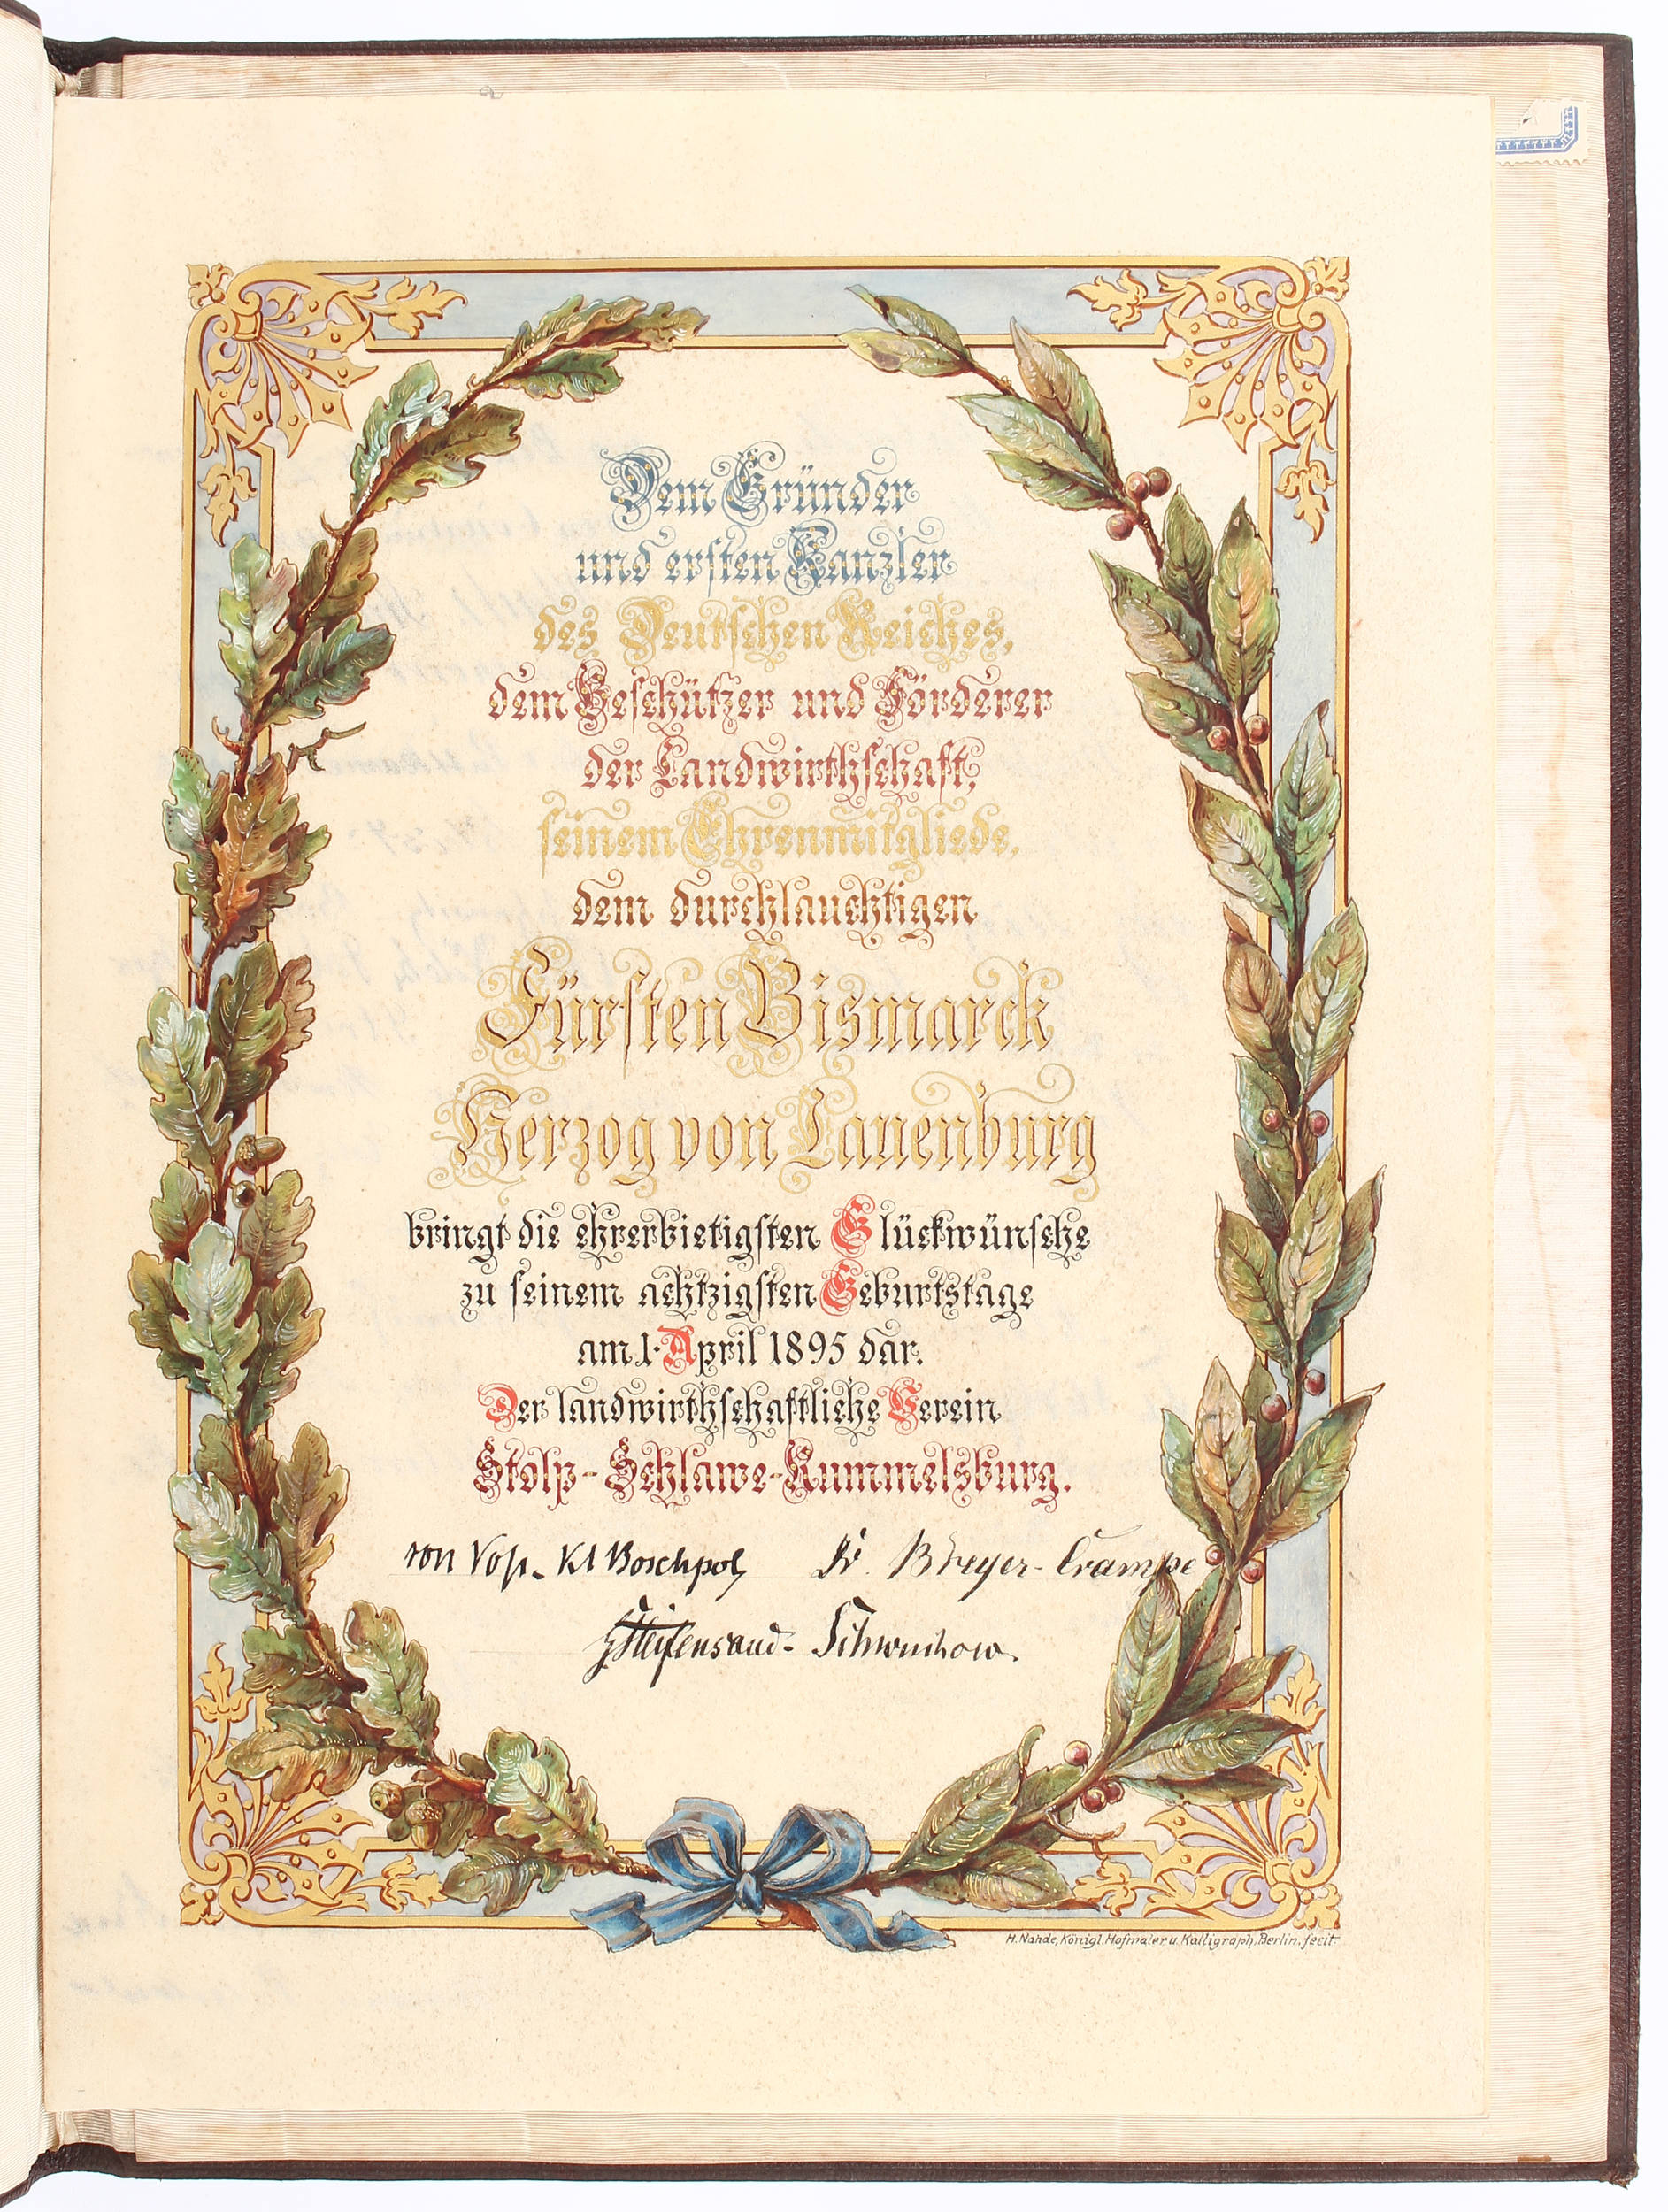 Dem Gründer
und ersten Kanzler
des Deutschen Reiches,
dem Beschützer und Förderer
der Landwirthschaft,
seinem Ehrenmitgliede,
dem durchlauchtigen
Fürsten Bismarck
Herzog von Lauenburg
bringt die ehrerbietigsten Glückwünsche
zu seinem achtzigsten Geburtstage
am 1. April 1895 dar.
Der landwirthschaftliche Verein
Stolp-Schlawe-Rummelsburg.
von Voß. Kl Boschpol Dr. Breyer-Crampe
Steifensand- Schwuchow.
H. Nahde, Königl. Hofmaler u. Kalligraph, Berlin. fecit.